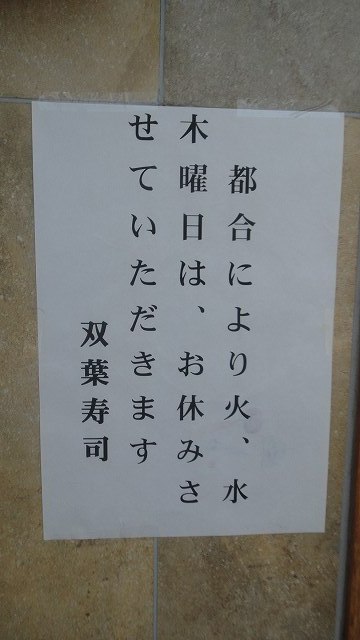 都合により火、水
木曜日は、お休みさ
せていただきます
双葉寿司